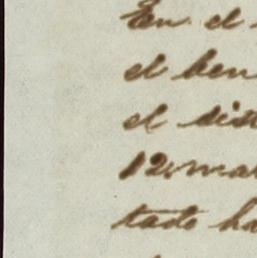 En el
el ben
el dist
12. mar
tado ha